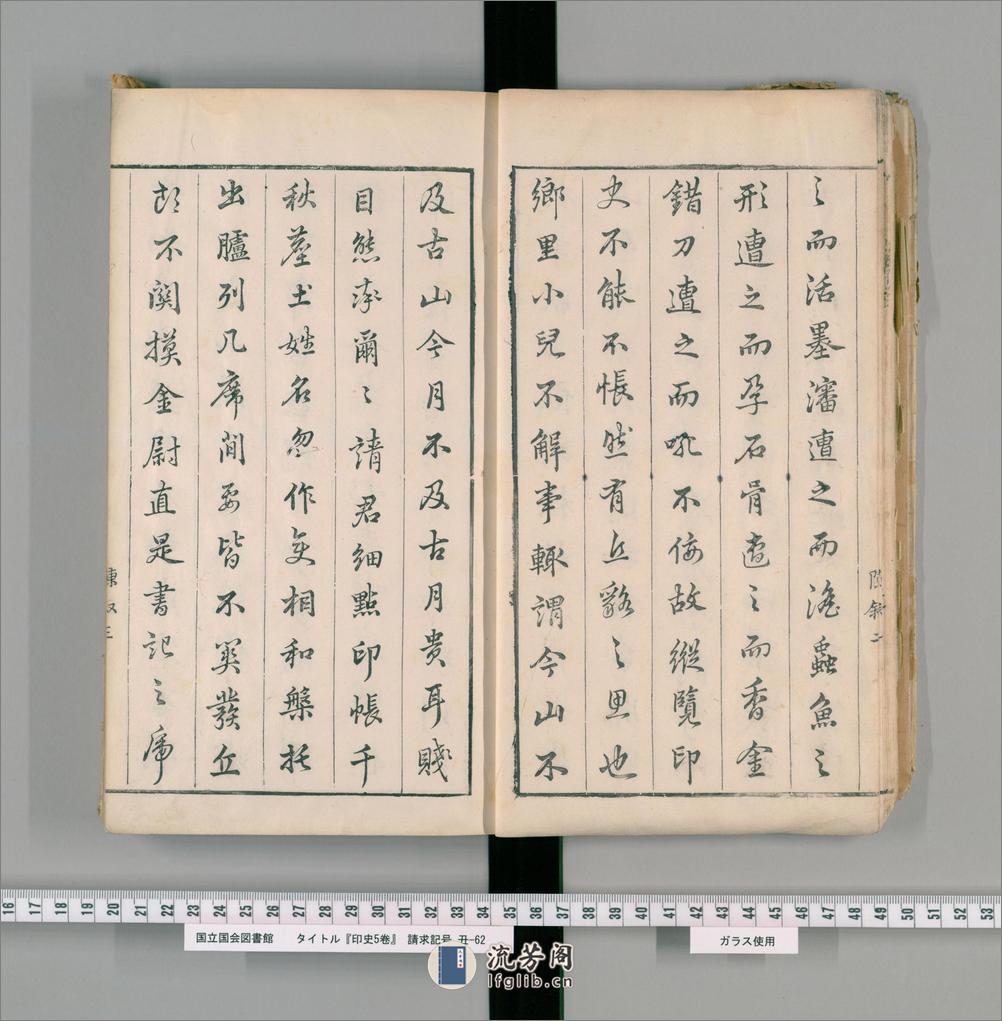 之而活墨瀋遭之而滛蟲魚之
形遭之而孕石骨遭之而香金
錯刀遭之而吼不佞故縱覽印
史不能不悵然有丘壑之思也
鄉里小兒不解事輒謂今山不
及古山今月不及古月貴耳賤
目態率爾爾請君細點印帳千
秋塵土姓名忽作矣相和槃托
出臚列几席間要皆不發丘
不關摸金尉直是書記之席
陳敘二
陳敘三
16 17 18 19 20 21 22 23 24 25 26 27 28 29 30 31 32 33 34 35 36 37 38 39 40 41 42 43 44 45 46 47 48 49 50 51 52 53
国立国会図書館 タイトル『印史5巻』 請求記号 丑-62
ガラス使用
流芳阁
lfglib.cn